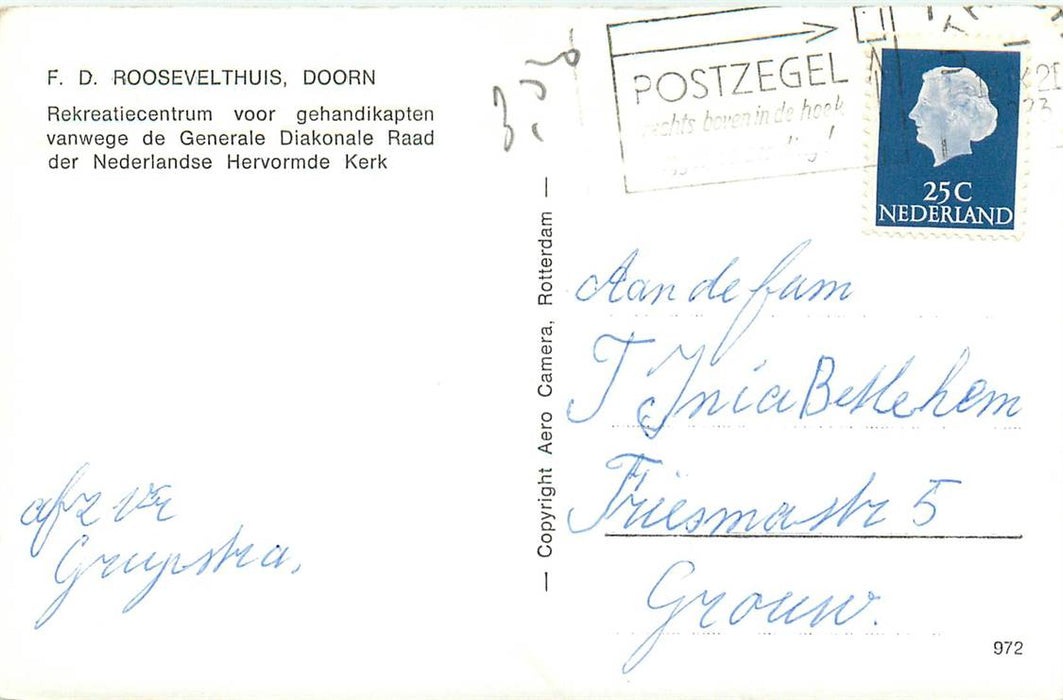 F. D. ROOSEVELTHUIS, DOORN
Rekreatiecentrum voor gehandikapten
vanwege de Generale Diakonale Raad
der Nederlandse Hervormde Kerk
afz
Grijpstra.
— Copyright Aero Camera, Rotterdam —
POSTZEGEL
rechts boven in de hoek
25C
NEDERLAND
Aan de fam
T Jnia Bethlehem
Friesmastr 5
Grouw.
972